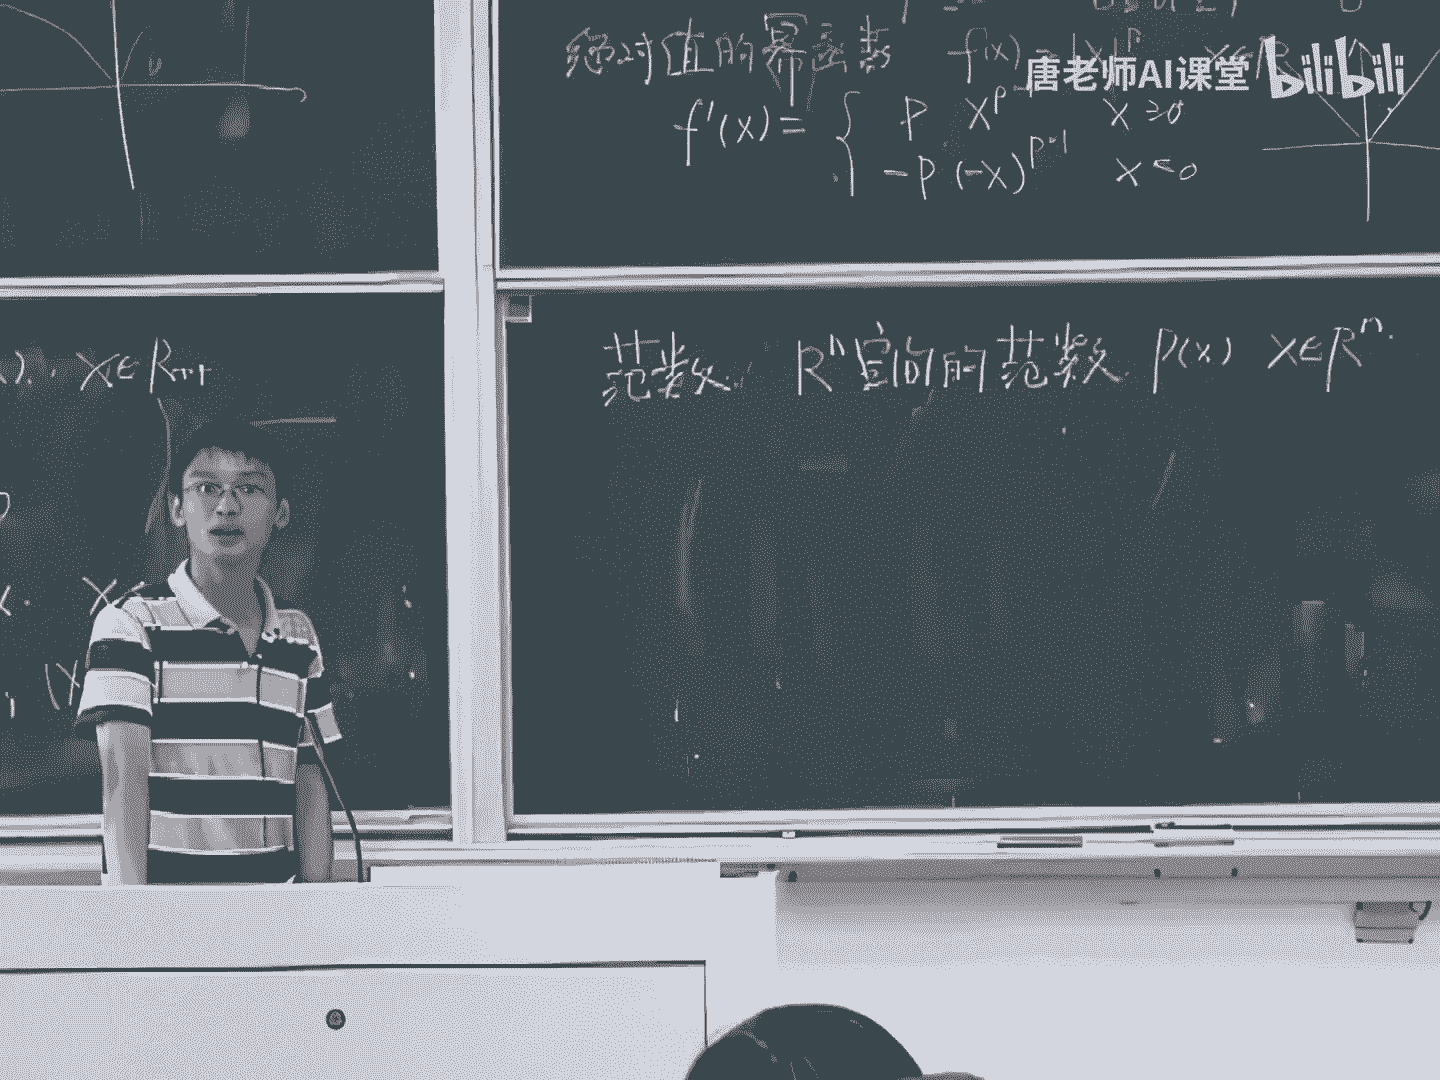 绝对值的幂函数 f(x) = |x|^p x∈R
唐老师AI课堂 bilibili
f'(x) = { p x^{p-1} x≥0
-p (-x)^{p-1} x<0
x∈R_{++}
范数. R^n空间的范数. p(x) x∈R^n.